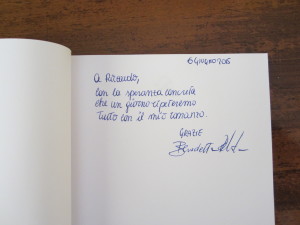 6 GIUGNO 206
A Riccardo,
con la speranza concreta
che un giorno ripeteremo
tutto con il mio romanzo.
GRAZIE
Benedetta